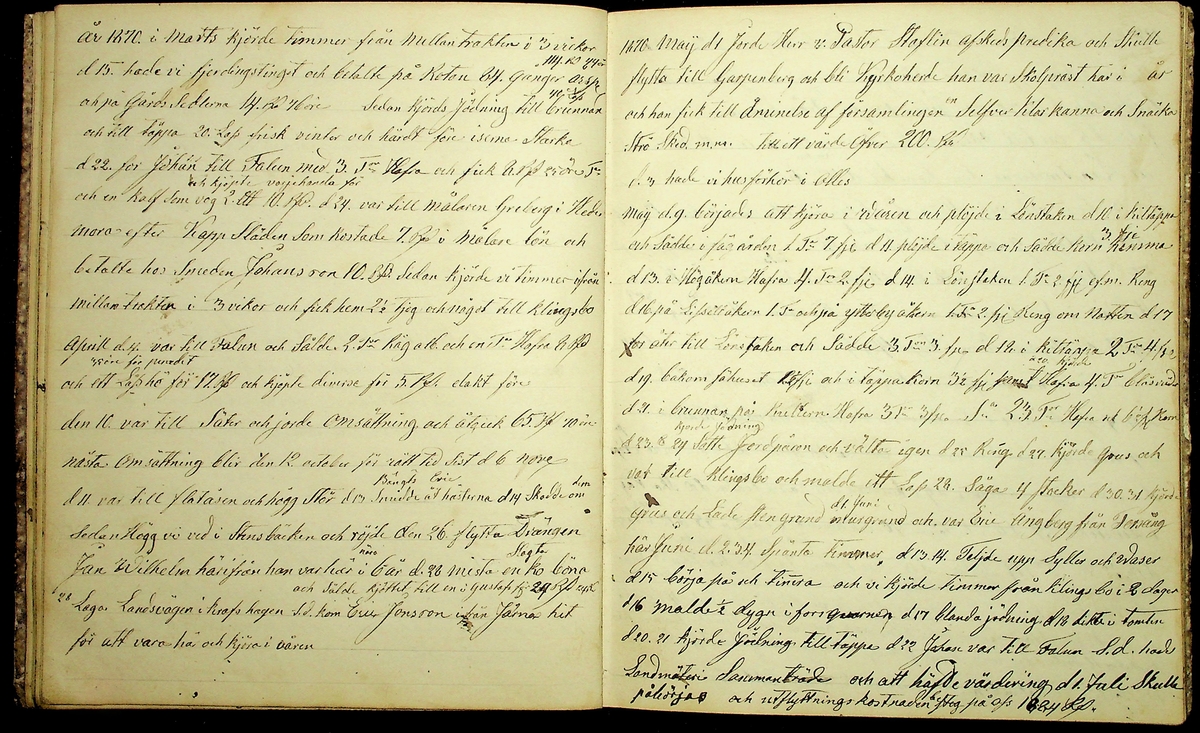 år 1870. i Marts kjörde timmer från Mellantrakten i 3 vickor
d 15. hade vi fjerdingstinget och betalte på Roton 64. Granger
och på Garos Sedlerna 14. öre Sedan kjörds Jödning till brunnan
och till täppa 20. Las frisk vinter och hårdt före isema Starke
d 22. for Johan till Falun med 3. Tnr Hafra och fick 25 öre Tn
och kjöpte varjehanda för
och en Kalf som vog 2. 10. d 24. var till mälaren Greberg i Hede
mora efter Kapp Släden som kostade 7. Rd i målare lön och
betalte hos Smeden Johansson 10. Rd Sedan kjörde vi timmer ifrån
millantrakten i 3 vickor och fick hem 2½ tjog och något till Klingsbo
Aprill d 4. var till Falun och Sålde 2. Tnr Råg och en Tn Hafra
35 öre för pundet
och ett Las hö för 17. Rd och kjöpte diverse för 5 Rd. elakt före
den 10. var till Säter och jorde Omsättning och åtgick 65. Rd 70 öre
nästa Omsättning blir den 12 october för rätt tid Sist d 6 nove
Bengts Eric
d 11 var till flatåsen och högg Stör d 13 Smidde åt hästerna d 14 Skodde om
dem
Sedan Högg vi ved i Stensbäcken och röjde den 26. flytta Drängen
Jan Wilhelm härifrån han var här i 6 år d. 28 mista en Ko böna
Slagta
och Sålde kjöttet till en i Gustafs för 29 Rd
28 Laga Landsvägen i Krafs hagen S.d. kom Eric Jonsson ifrån Järna hit
för att vara hä och kjöra i våren
1870 Maij d 1 Jorde Herr v. Pastor Staflin afskeds predika och Skulle
flytta till Garpenberg och bli Kyrkoherde han var Stolpräst här i år
och han fick till Åminelse af församlingen en Selfver kanna och Snäcka
Strö Sked m.m. till ett värde Öfver 200. Rd
d. 3 hade vi husförhör i Olles
maij d. 9. börjades att kjöra i våren och plöjde i Lönstaken d 10 i Kiltäppe
och Sådde i jägården 1 Tn 7 fji d 11 plöjde i täppa och Sådde Kern 3 fji hemma
d 13. i Högåkern Hafra 4. Tn 2 fji d 14. i Lönstaken 1. Tn 2 fji ef.m. Reng
d 16 på 1. Tn och på ytterbyåkern 1. Tn 2. fji Reng om Natten d 17
för åter till Lönstaken och Sådde 3. Tnr 3. fji d 18 i kiltäppa 2 Tnr 4 fji
d 20. kjörde
d 19. bakom fähuset fji och i täppa Korn 3½ fji Hafra 4. Tn
d 21. i brunnan på Kullern Hafra 3 Tnr 3 fji S:a 23. Tnr Hafra
kjörde Jödning
d 23. & 24 Sätte Jordpäron och välte igen d 25 Reng d 27. kjörde Grus och
var till Klingsbo och malde ett Las 28. Såga 4 Stocker d 30. 31 kjörde
d 1. Juni
Grus och Lade Sten grund och var Eric Ängberg från Torsång
här Juni d. 2. 3. 4 Spänta timmer, d 13. 14. Täljde upp Syller och
d 15 börja på och timra och vi kjörde timmer från Klingsbo i 2 dagar
d 16 malde ½ dygn i forrqvarnen d 17 blanda jödning d 18 i tomten
d 20. 21 kjörde Jödning till täppa d 22 Johan var till Falun S.d. hade
Landmäteri Sammanträde och att häfdevärdering d 1. Juli Skulle
påbörjas och utflyttnings kostnaden Steg på Rd.